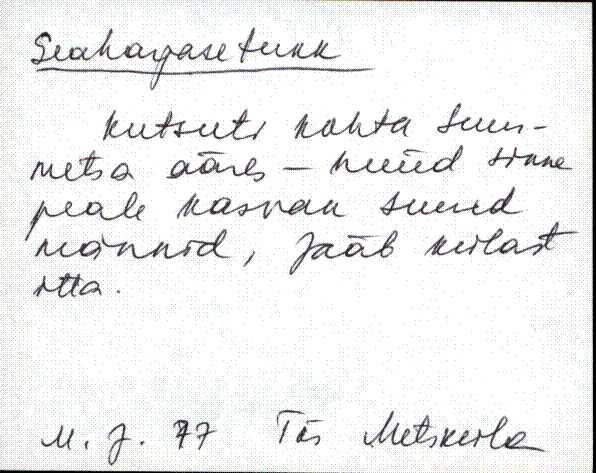 Seahagasetukk
kutsuti kohta Suur-
metsa ääres – nüüd sinna
peale kasvan suured
männid, Jääb külast
itta.
M. J. 77 Tõs Metsküla